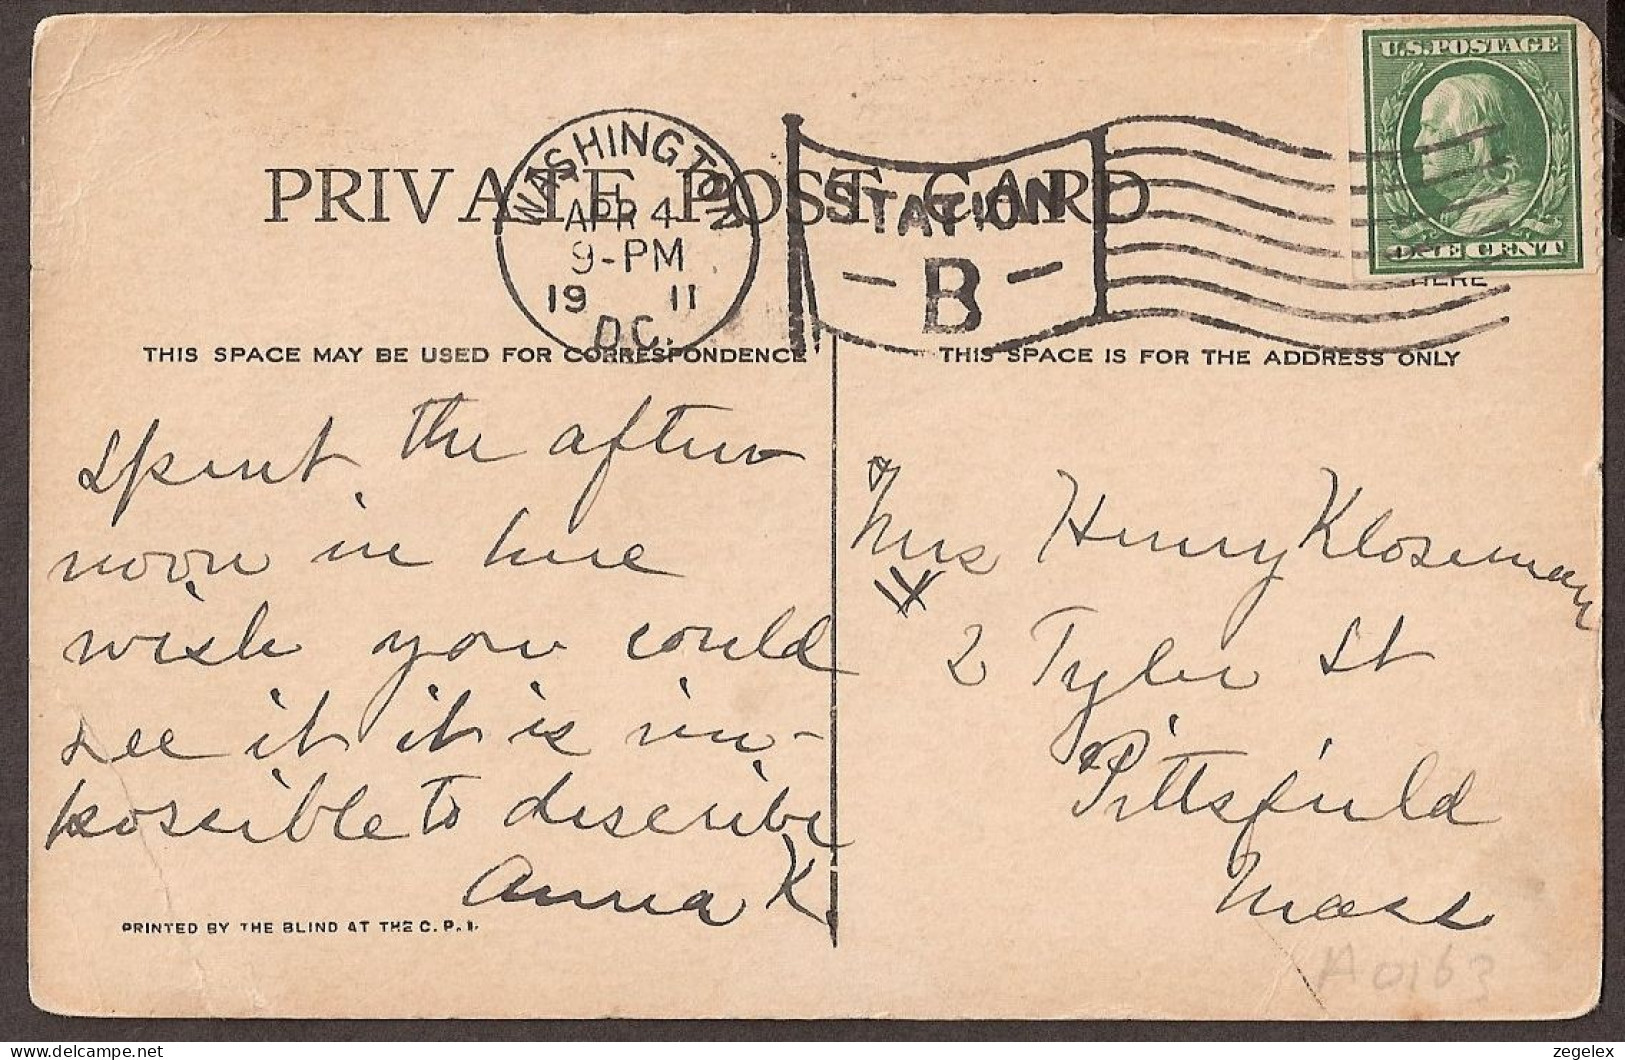 U.S. POSTAGE
ONE CENT
HERE
PRIVATE POST CARD
WASHINGTON
APR 4
9-PM
19 11
D.C.
STATION
- B -
THIS SPACE MAY BE USED FOR CORRESPONDENCE
Spent the after
noon in here
wish you could
see it it is im-
possible to describe
Anna K.
PRINTED BY THE BLIND AT THE C. P. I.
THIS SPACE IS FOR THE ADDRESS ONLY
Mrs Henry Kloseman
2 Tyler St
Pittsfield
Mass
A0163
zegelex
delcampe.net